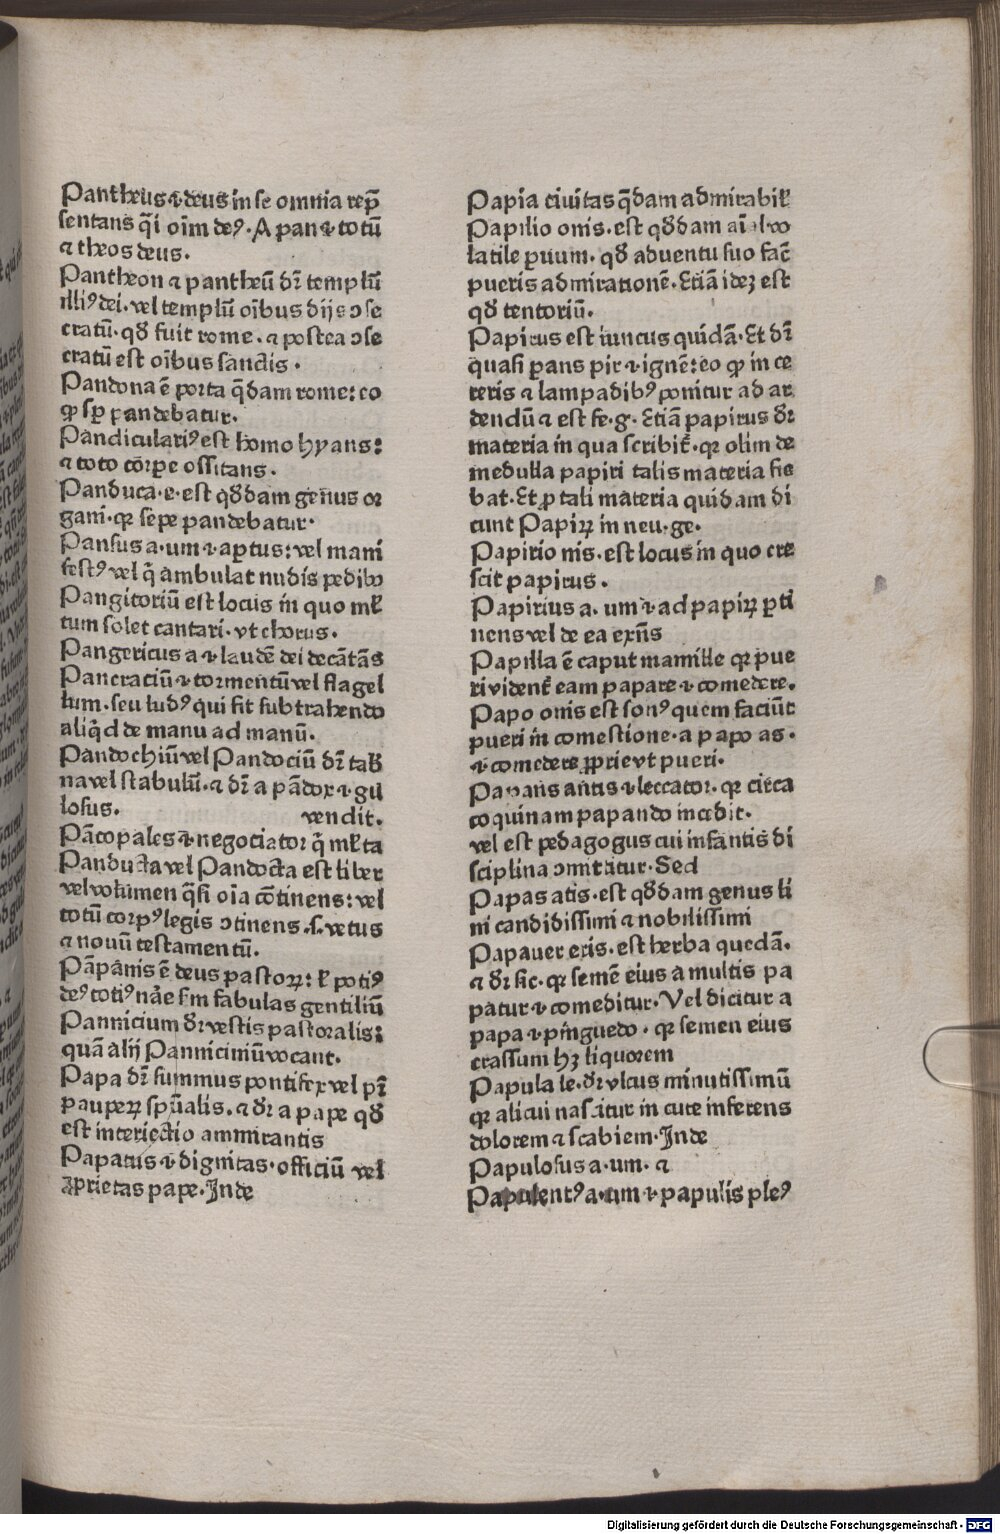 Pantheus ⁊ deus in se omnia rep̄
sentans q̄i oīm deꝰ. A pan ⁊ totū
⁊ theos deus.
Pantheon ⁊ pantheū dr̄ templū
illiꝰ dei. vel templū oībus dijs ↄse
cratū. qd̄ fuit rome. ⁊ postea ↄse
cratū est oībus sanctis.
Pandona ē porta q̄dam rome: eo
ꝙ sp̄ pandebatur.
Pandiculariꝰ est homo hyans:
⁊ toto corꝑe ossitans.
Panduca. e. est qd̄dam genus or
gani. qꝛ sepe pandebatur.
Pansus a. um ⁊ aꝑtus: vel mani
festꝰ vel q̄ ambulat nudis pedibꝰ
Pangitoriū est locus in quo ml̄
tum solet cantari. vt chorus.
Pangericus a ⁊ laudē dei decātās
Pancraciū ⁊ tormentū vel flagel
lum. seu ludꝰ qui fit subtrahendo
aliq̄d de manu ad manū.
Pandochiū vel Pandociū dr̄ tab̄
na vel stabulū. ⁊ dr̄ a pādox ⁊ gu
losus. vendit.
Pācopales ⁊ negociator q̄ ml̄ta
Panducta vel Pandocta est liber
vel volumen q̄si oīa cōtinens: vel
totū corpꝰ legis ↄtinens. s. vetus
⁊ nouū testamentū.
Pā panis ē deus pastoꝝ: l̄ potiꝰ
deꝰ totiꝰ nāe sm̄ fabulas gentiliū
Pannicium dr̄ vestis pastoralis:
quā alij Panniciniū vocant.
Papa dr̄ summus pontifex vel pr̄
pauperꝝ spūalis. ⁊ dr̄ a pape qd̄
est interiectio ammirantis
Papatus ⁊ dignitas. officiū vel
ꝓprietas pape. Inde
Papia ciuitas q̄dam admirabil̄
Papilio onis. est qd̄dam aīal vo
latile ꝑuum. qd̄ aduentu suo fac̄
pueris admirationē. Etiā idēꝫ est
qd̄ tentoriū.
Papirus est iuncus quidā. Et dr̄
quasi parans pir ⁊ ignē: eo ꝙ in ce
reris ⁊ lampadibꝰ ponitur ad ar
dendū ⁊ est fe. g. Etiā papirus dr̄
materia in qua scribit̄. qꝛ olim de
medulla papiri talis materia fie
bat. Et ꝓ tali materia quidam di
cunt Papiꝝ in neu. ge.
Papirio nis. est locus in quo cre
scit papirus.
Papirius a. um ⁊ ad papiꝝ ꝑti
nens vel de ea exn̄s
Papilla ē caput mamille qꝛ pue
ri vident̄ eam papare ⁊ comedere.
Papo onis est sonꝰ quem faciūt
pueri in comestione. a papo as.
⁊ comedere ꝓprie vt pueri.
Papans antis ⁊ leccator. qꝛ circa
coquinam papando incedit.
vel est pedagogus cui infantis di
sciplina ↄmittatur. Sed
Papas atis. est qd̄dam genus li
ni candidissimi ⁊ nobilissimi
Papauer eris. est herba quedā.
⁊ dr̄ sic. qꝛ semē eius a multis pa
patur ⁊ comeditur. Vel dicitur a
papa ⁊ pinguedo. qꝛ semen eius
crassum hꝫ liquorem
Papula le. dr̄ vlcus minutissimū
qꝛ alicui nascitur in cute inferens
dolorem ⁊ scabiem. Inde
Papulosus a. um. ⁊
Papulentꝰ a. um ⁊ papulis pleꝰ
Digitalisierung gefördert durch die Deutsche Forschungsgemeinschaft - DFG